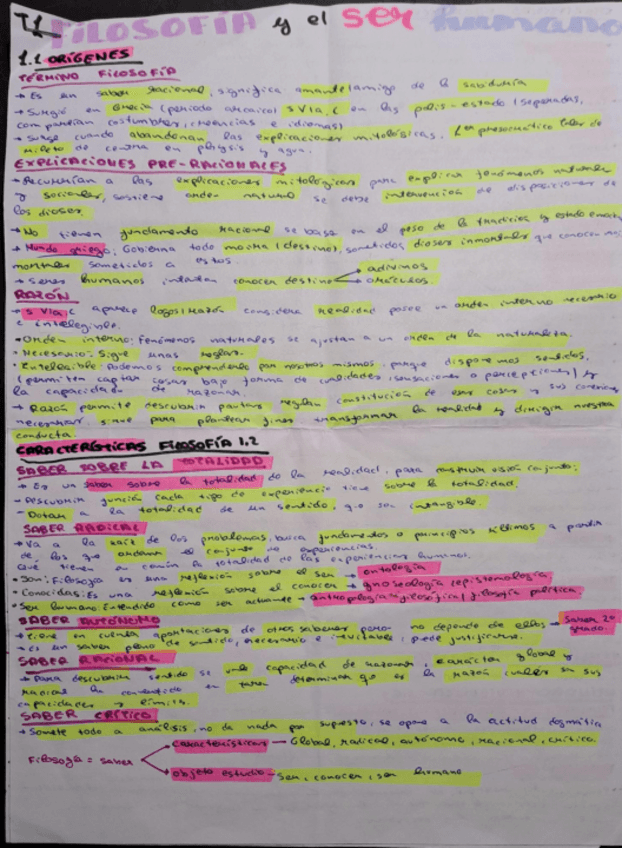 T1 FILOSOFÍA y el ser humano
1.1 ORÍGENES
TÉRMINO FILOSOFÍA
→ Es un saber racional, significa amante/amigo de la sabiduría
→ Surgió en Grecia (periodo arcaico) s VI a.C en las polis-estado (separadas,
compartían costumbres, creencias e idiomas)
→ Surge cuando abandonan las explicaciones mitológicas. 1er presocrático Tales de
Mileto se centra en physis y agua.
EXPLICACIONES PRE-RACIONALES
→ Recurrían a las explicaciones mitológicas para explicar fenómenos naturales
y sociales, sostiene orden natural se debe intervención de disposiciones de
los dioses.
→ No tienen fundamento racional se basa en el peso de la tradición y estado
→ Mundo griego: Gobierna todo moira (destino), sometidos dioses inmortales que conocen
mortales sometidos a estos.
→ Seres humanos intentan conocer destino → adivinos
→ oráculos
RAZÓN
→ s VI a.C aparece logos/razón considera realidad posee un orden interno necesario
e inteligible.
• Orden interno: Fenómenos naturales se ajustan a un orden de la naturaleza.
• Necesario: Sigue unas reglas.
• Inteligible: Podemos comprenderlo por nosotros mismos, porque disponemos sentidos,
(permiten captar cosas bajo forma de cualidades, sensaciones o percepciones) y
la capacidad de razonar.
→ Razón permite descubrir pautas, regulan constitución de esas cosas y sus conexiones
necesarias, sirve para plantear fines, transformar la realidad y dirigir nuestra
conducta.
CARACTERÍSTICAS FILOSOFÍA 1.2
SABER SOBRE LA TOTALIDAD
→ Es un saber sobre la totalidad de la realidad, para construir visión conjunto:
- Descubrir función cada tipo de experiencia tiene sobre la totalidad.
- Dotar a la totalidad de un sentido, que sea intangible.
SABER RADICAL
→ Va a la raíz de los problemas, busca fundamentos o principios últimos a partir
de los que ordenar el conjunto de experiencias.
Qué tienen en común la totalidad de las experiencias humanas.
• Son: Filosofía es una reflexión sobre el ser → ontología
• Conocidas: Es una reflexión sobre el conocer → gnoseología (epistemología)
• Ser humano: Entendido como ser actuante → antropología filosófica/filosofía política.
SABER AUTÓNOMO
→ Tiene en cuenta aportaciones de otros saberes pero no depende de ellos → Saber 2º
grado.
→ Es un saber pleno de sentido, necesario e inevitable, puede justificarse.
SABER RACIONAL
→ Para descubrir sentido se vale capacidad de razonar, carácter global y
racional la convertido en tarea determinar qué es la razón, cuáles son sus
capacidades y límites.
SABER CRÍTICO
→ Somete todo a análisis, no da nada por supuesto, se opone a la actitud dogmática
Filosofía = saber
→ características — Global, radical, autónomo, racional, crítico.
→ objeto estudio — Ser, conocer, ser humano